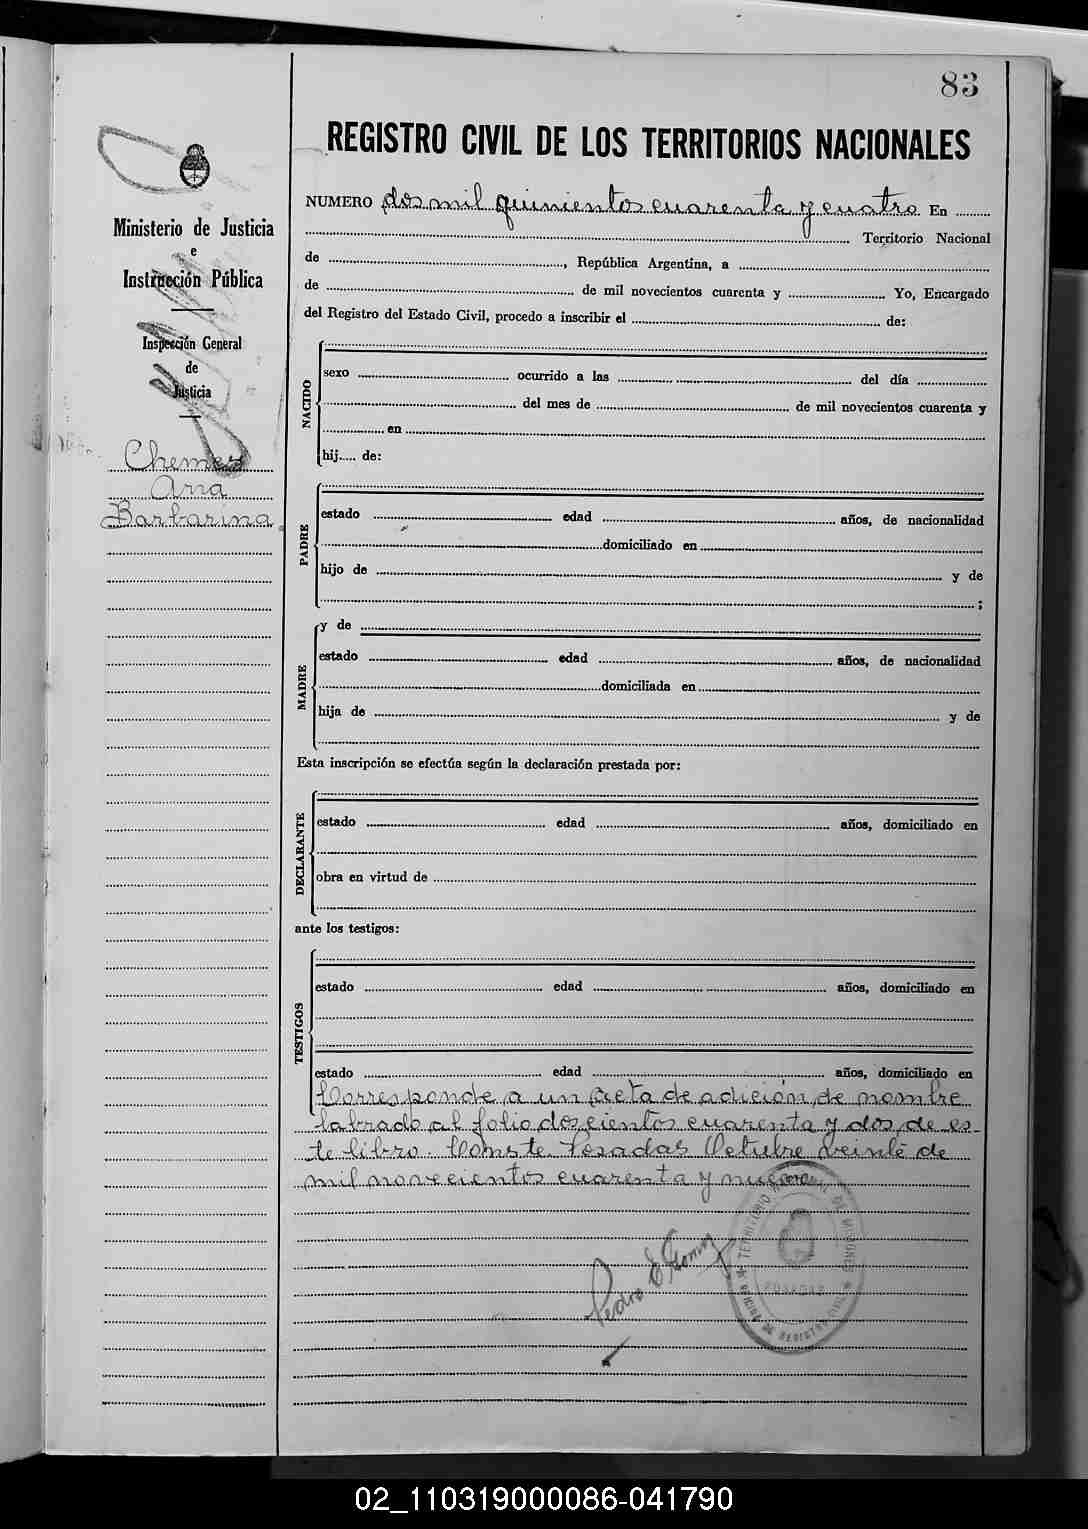 83
REGISTRO CIVIL DE LOS TERRITORIOS NACIONALES
Ministerio de Justicia
e
Instrucción Pública
Inspección General
de
Justicia
Chemes
Ana
Barbarina
NUMERO dos mil quinientos cuarenta y cuatro En
Territorio Nacional
de , República Argentina, a
de de mil novecientos cuarenta y Yo, Encargado
del Registro del Estado Civil, procedo a inscribir el de:
NACIDO
sexo ocurrido a las del día
del mes de de mil novecientos cuarenta y
en
hij..... de:
PADRE
estado edad años, de nacionalidad
domiciliado en
hijo de y de
;
MADRE
y de
estado edad años, de nacionalidad
domiciliada en
hija de y de
Esta inscripción se efectúa según la declaración prestada por:
DECLARANTE
estado edad años, domiciliado en
obra en virtud de
ante los testigos:
TESTIGOS
estado edad años, domiciliado en
estado edad años, domiciliado en
Corresponde a un acta de adición de nombre
labrado al folio doscientos cuarenta y dos de es-
te libro. Conste Posadas Octubre veinte de
mil novecientos cuarenta y nueve
Pedro E. Gomez
TERRITORIO NACIONAL DE MISIONES
POSADAS
OFICINA DE REGISTRO CIVIL
02_110319000086-041790